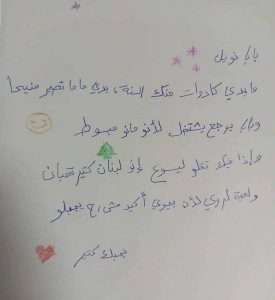 بابا نويل
ما بدي كادوات منك السنة، بدي ماما تصير منيحا
وبابا يرجع يشتغل لأنو مانو مبسوط
وإذا فيك تقلو ليسوع إنو لبنان كتير تعبان
ولعبة لروي لأن بيي أكيد مش رح يجبلو
بحبك كتير